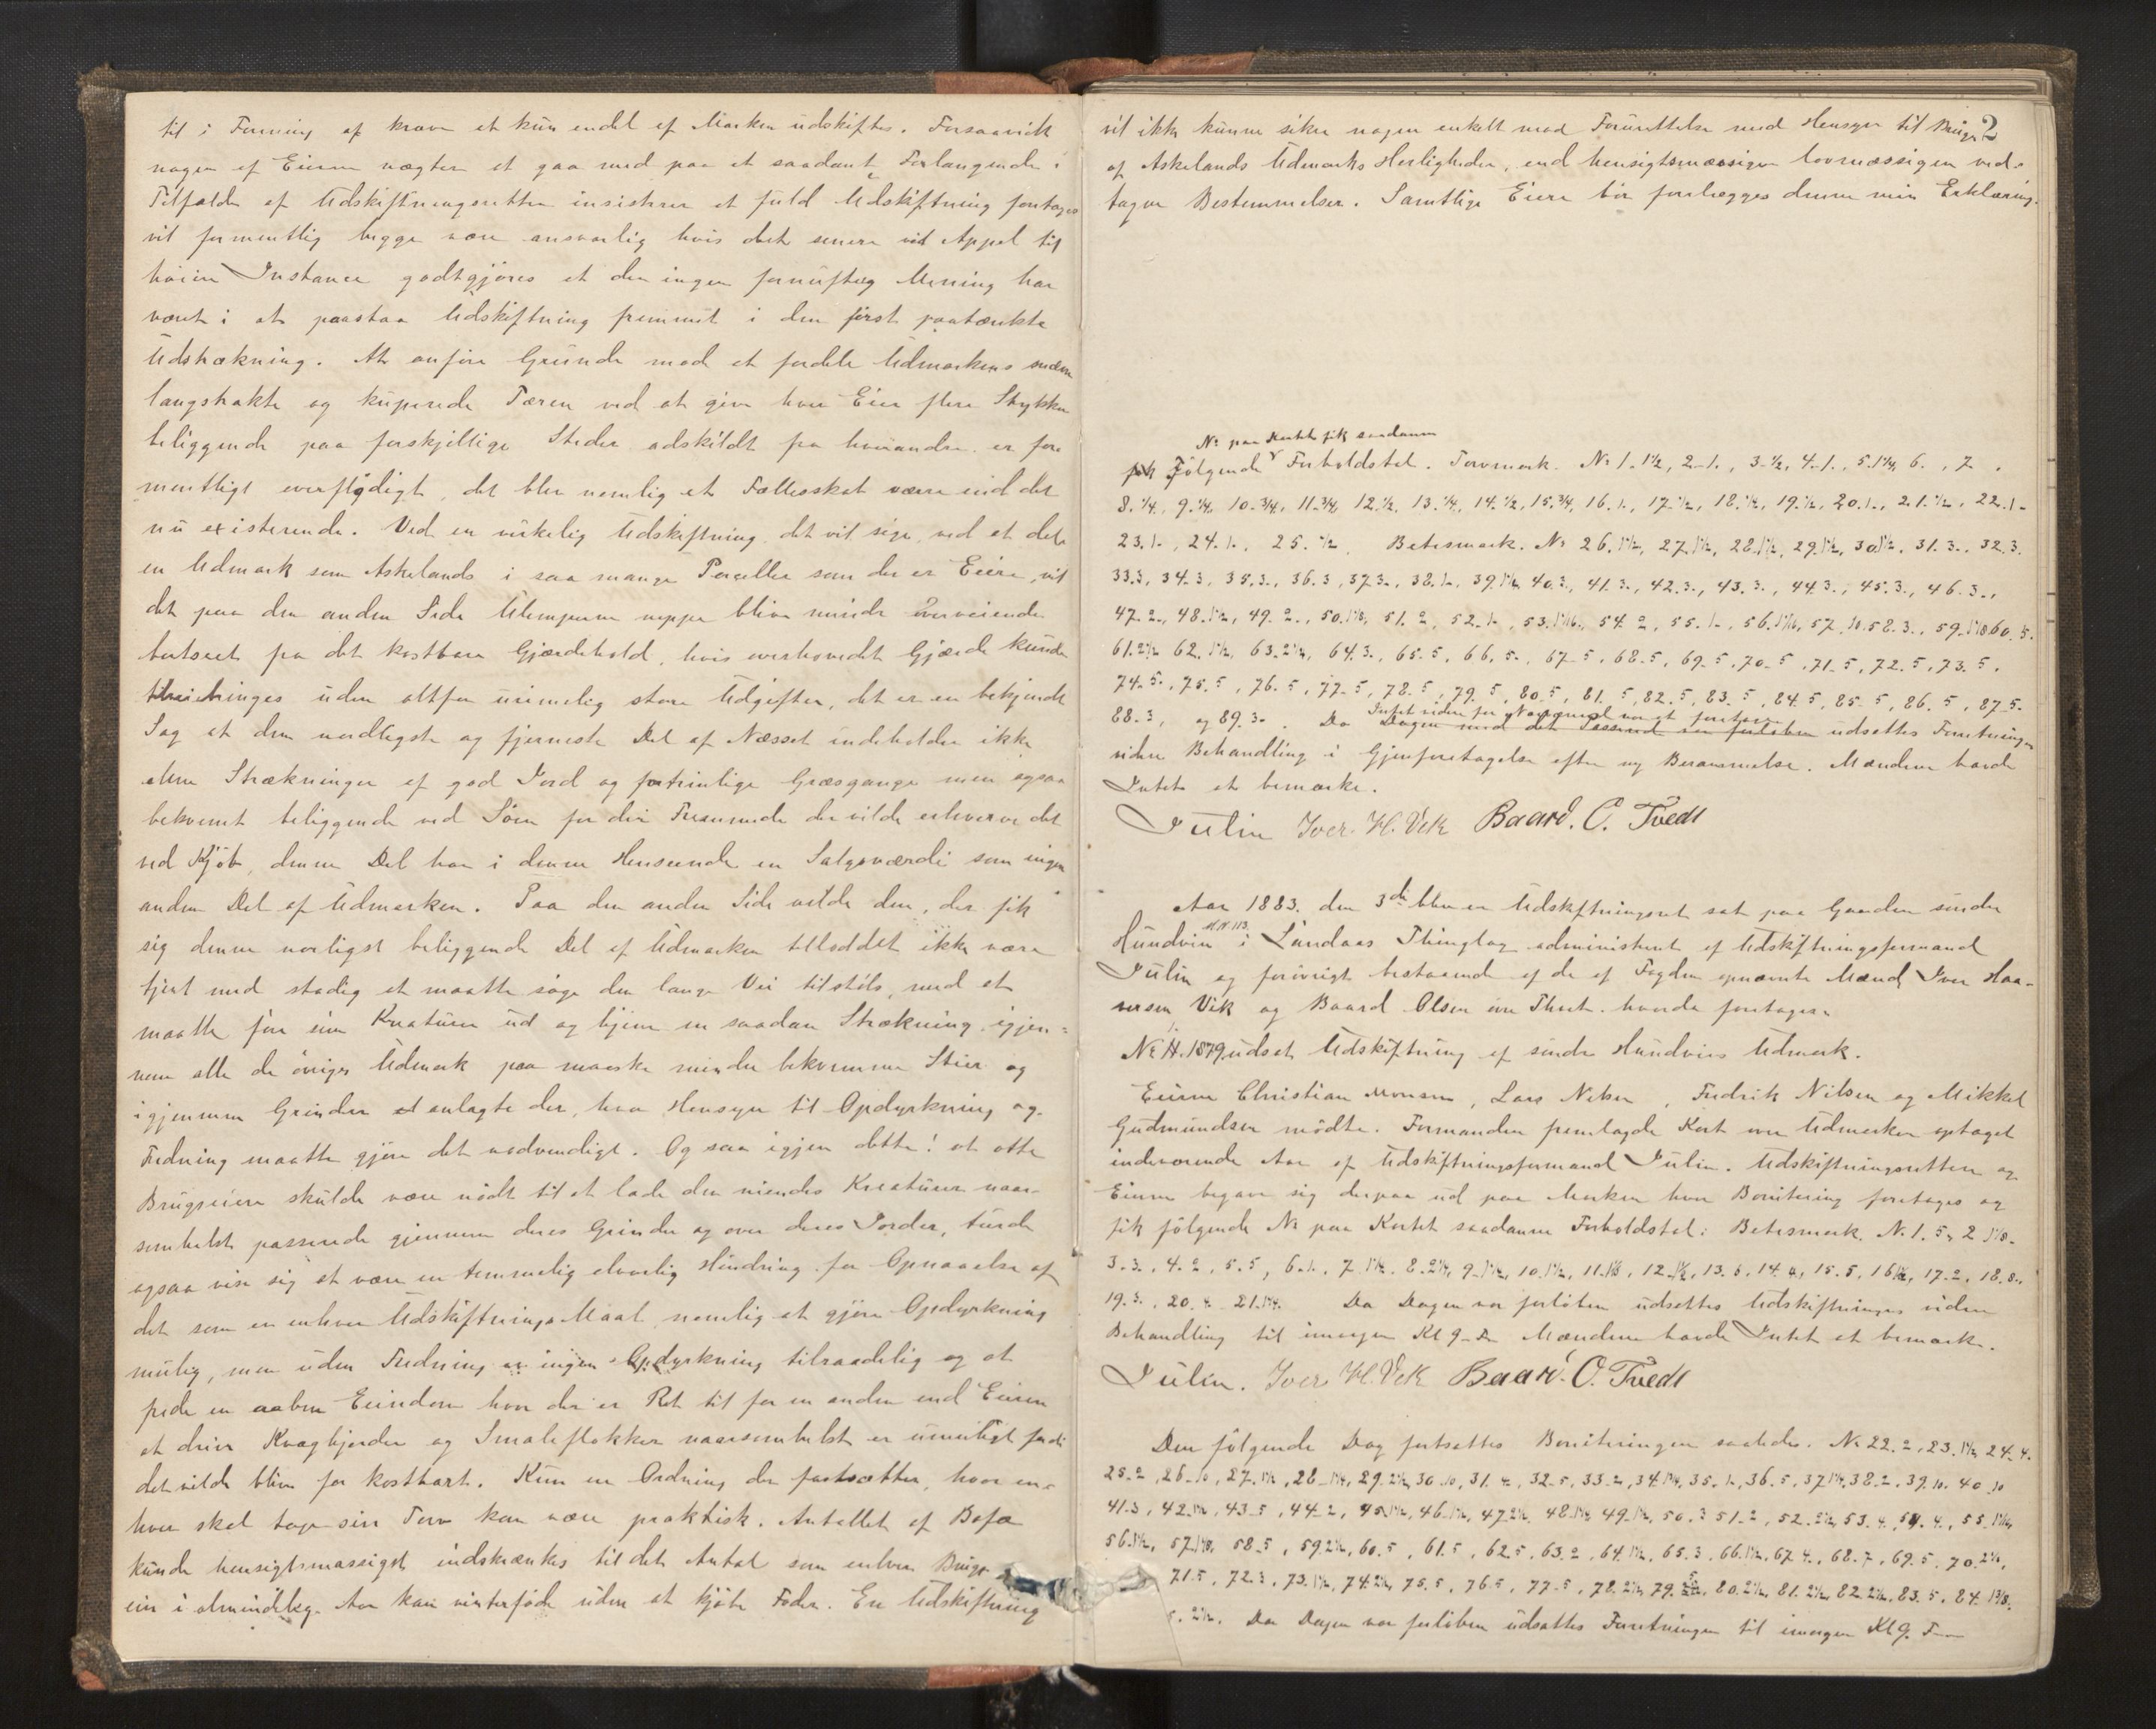 til i Forening at kræve at kun endel af Marken udskiftes. Forsaavidt
nogen af Eierne nægter at gaa med paa et saadant Forlangende i
Tilfælde af Udskiftningsretten insisterer at fuld Udskiftning foretages
vil formentlig begge være ansvarlig hvis det senere ved Appel til
høiere Instance godtgjøres at der ingen fornuftig Mening har
været i at paastaa Udskiftning fremmet i den først paatænkte
Udstrækning. At anføre Grunde mod at fordele Udmarkens
langstrakte og kuperede Tæren ved at give hver Eier flere Stykker
beliggende paa forskjellige Steder adskildt fra hverandre er for-
mentligt overflødigt, det blev nemlig et Fællesskab værre end det
nu existerende. Ved en virkelig Udskiftning, det vil sige, ved at dele
en Udmark som Askelands i saa mange Parceller som der er Eiere, vil
det paa den anden Side Ulemperne neppe blive mindre overveiende
bortseet fra det kostbare Gjærdehold, hvis overhovedet Gjærde kunde
tilveiebringes uden altfor urimelig store Udgifter, det er en bekjendt
Sag at den nordligste og fjerneste Del af Næsset indeholder ikke
alene Strækninger af god Jord og fortrinlige Græsgange men ogsaa
bekvemt beliggende ved Søen for den Fremmede der vilde erhverve det
ved Kjøb, denne Del har i denne Henseende en Salgsværdi som ingen
anden Del af Udmarken. Paa den anden Side vilde den, der fik
sig denne nordligst beliggende Del af Udmarken tilloddet ikke være
tjent med stadig at maatte søge den lange Vei tilstøls, med at
maatte føre sine Kreaturer ud og hjem en saadan Strækning igjen-
nem alle de øvriges Udmark paa maaske mindre bekvemme Stier og
igjennem Grinder anlagte der, hvor Hensyn til Opdyrkning og
Fredning maatte gjøre det nødvendigt. Og saa igjen dette! at otte
Brugseiere skulde være nødt til at lade den niendes Kreaturer naar-
somhelst passerede gjennem deres Grinder og over deres Jorder, turde
ogsaa vise sig at være en temmelig alvorlig Hindring for Opnaaelse af
det som er enhver Udskiftnings Maal, nemlig at gjøre Opdyrkning
mulig, men uden Fredning er ingen Opdyrkning tilraadelig og at
frede en aaben Eiendom hvor der er Ret til for en anden end Eieren
at drive Kvæghjorder og Smaleflokker naarsomhelst er umuligt fordi
det vilde blive for kostbart. Kun en Ordning der fastsætter, hvor en-
hver skal tage sin Torv kan være praktisk. Antallet af Bofæ
kunde hensigtsmæssigst indskrænkes til det Antal som enhver Bruger
eier i almindelig Aar kan vinterføde uden at kjøbe Foder. En Udskiftning
2
vil ikke kunne sikre nogen enkelt mod Forurettelse med Hensyn til Brugen
af Askelands Udmarks Herligheder, end hensigtsmæssigen lovmæssigen ved-
tagne Bestemmelser. Samtlige Eiere bør forelægges denne min Erklæring.
No paa Kartet fik saadanne
fik Følgende Forholdstal. Torvmark. No 1. 1½, 2. 1., 3. ½, 4. 1., 5. 1¼, 6. , 7. ,
8. ¼, 9. ¼, 10. ¾, 11. ¾, 12. ½, 13. ¼, 14. ½, 15. ¾, 16. 1., 17. ½, 18. ¼, 19. ½, 20. 1., 21. ½, 22. 1.
23. 1., 24. 1., 25. ½. Betesmark. No 26. 1½, 27. 1½, 28. 1½, 29. 1½, 30. 1½, 31. 3., 32. 3.
33. 3, 34. 3, 35. 3., 36. 3, 37. 3., 38. 1., 39. 1½, 40. 3., 41. 3., 42. 3., 43. 3., 44. 3., 45. 3., 46. 3.,
47. 2., 48. 1½, 49. 2., 50. 1⅛, 51. 2, 52. 1., 53. 1 1/16., 54. 2, 55. 1., 56. 1 1/16, 57. 10. 58. 3., 59. 1⅛ 60. 5.
61. 2½ 62. 1½, 63. 2½, 64. 3., 65. 5, 66. 5., 67. 5, 68. 5, 69. 5, 70. 5, 71. 5, 72. 5, 73. 5,
74. 5., 75. 5, 76. 5, 77. 5, 78. 5, 79. 5, 80. 5, 81. 5, 82. 5, 83. 5, 84. 5, 85. 5, 86. 5, 87. 5.
Intet videre for Nærværende var at foretage
88. 3, og 89. 3. Da Dagen med det Passerede var forløben udsættes Forretningen
videre Behandling i Gjenforetagelse efter ny Berammelse. Mændene havde
Intet at bemærke.
Julin Iver H. Vik Baard. O. Tvedt
Aar 1883. den 3die blev en Udskiftningsret sat paa Gaarden søndre
M.N. 113.
Hundvin i Lundaas Thinglag administreret af Udskiftningsformand
Julin og forøvrigt bestaaende af de af Fogden opnævnte Mænd Iver Haa-
versen Vik og Baard Olsen øvre Thvet. hvorda foretages:
No 14. 1879 udsat Udskiftning af søndre Hundvins Udmark.
Eierne Christian Monsen, Lars Nilsen, Fredrik Nilsen og Mikkel
Gudmundsen mødte. Formanden fremlagde Kart over Udmarken optaget
indeværende Aar af Udskiftningsformand Julin. Udskiftningsretten og
Eierne begave sig derpaa ud paa Marken hvor Bonitering foretoges og
fik følgende No paa Kartet saadanne Forholdstal: Betesmark. N. 1. 5., 2. 1⅛.
3. 3., 4. 2, 5. 5, 6. 1., 7. 1¼. 8. 2½, 9. 1½, 10. 1½, 11. 1⅛, 12. 1½, 13. 5, 14. 4, 15. 5, 16. 1½, 17. 2, 18. 8.,
19. 3., 20. 4. 21. 1¼. Da Dagen var forløben udsættes Udskiftningens videre
Behandling til imorgen Kl 9. Fm Mændene havde Intet at bemærk.
Julin. Iver H. Vik Baard. O. Tvedt
Den følgende Dag fortsattes Boniteringen saaledes. No 22. 2, 23. 1½, 24. 4.
25. 2, 26. 10, 27. 1½, 28. 1¼, 29. 2½, 30. 10, 31. 4, 32. 5, 33. 2, 34. 1¼, 35. 1., 36. 5, 37. 1¼, 38. 2, 39. 10. 40. 10
41. 3, 42. 1½, 43. 5, 44. 2, 45. 1½, 46. 1½, 47. 2½, 48. 1¼, 49. 1½, 50. 3 51. 2, 52. 2½, 53. 4., 54. 4., 55. 1 1/16,
56. 1½, 57. 1⅛, 58. 5, 59. 2½, 60. 5, 61. 5, 62. 5, 63. 2, 64. 1½, 65. 3, 66. 1½, 67. 4., 68. 7, 69. 5, 70. 2½,
71. 5, 72. 3, 73. 1½, 74. 2½, 75. 5, 76. 5, 77. 5, 78. 2½, 79. 5, 80. 2½, 81. 2½, 82. 2½, 83. 5, 84. 1⅜.
5. 2½. Da Dagen var forløben udsattes Forretningen til imorgen Kl 9. F